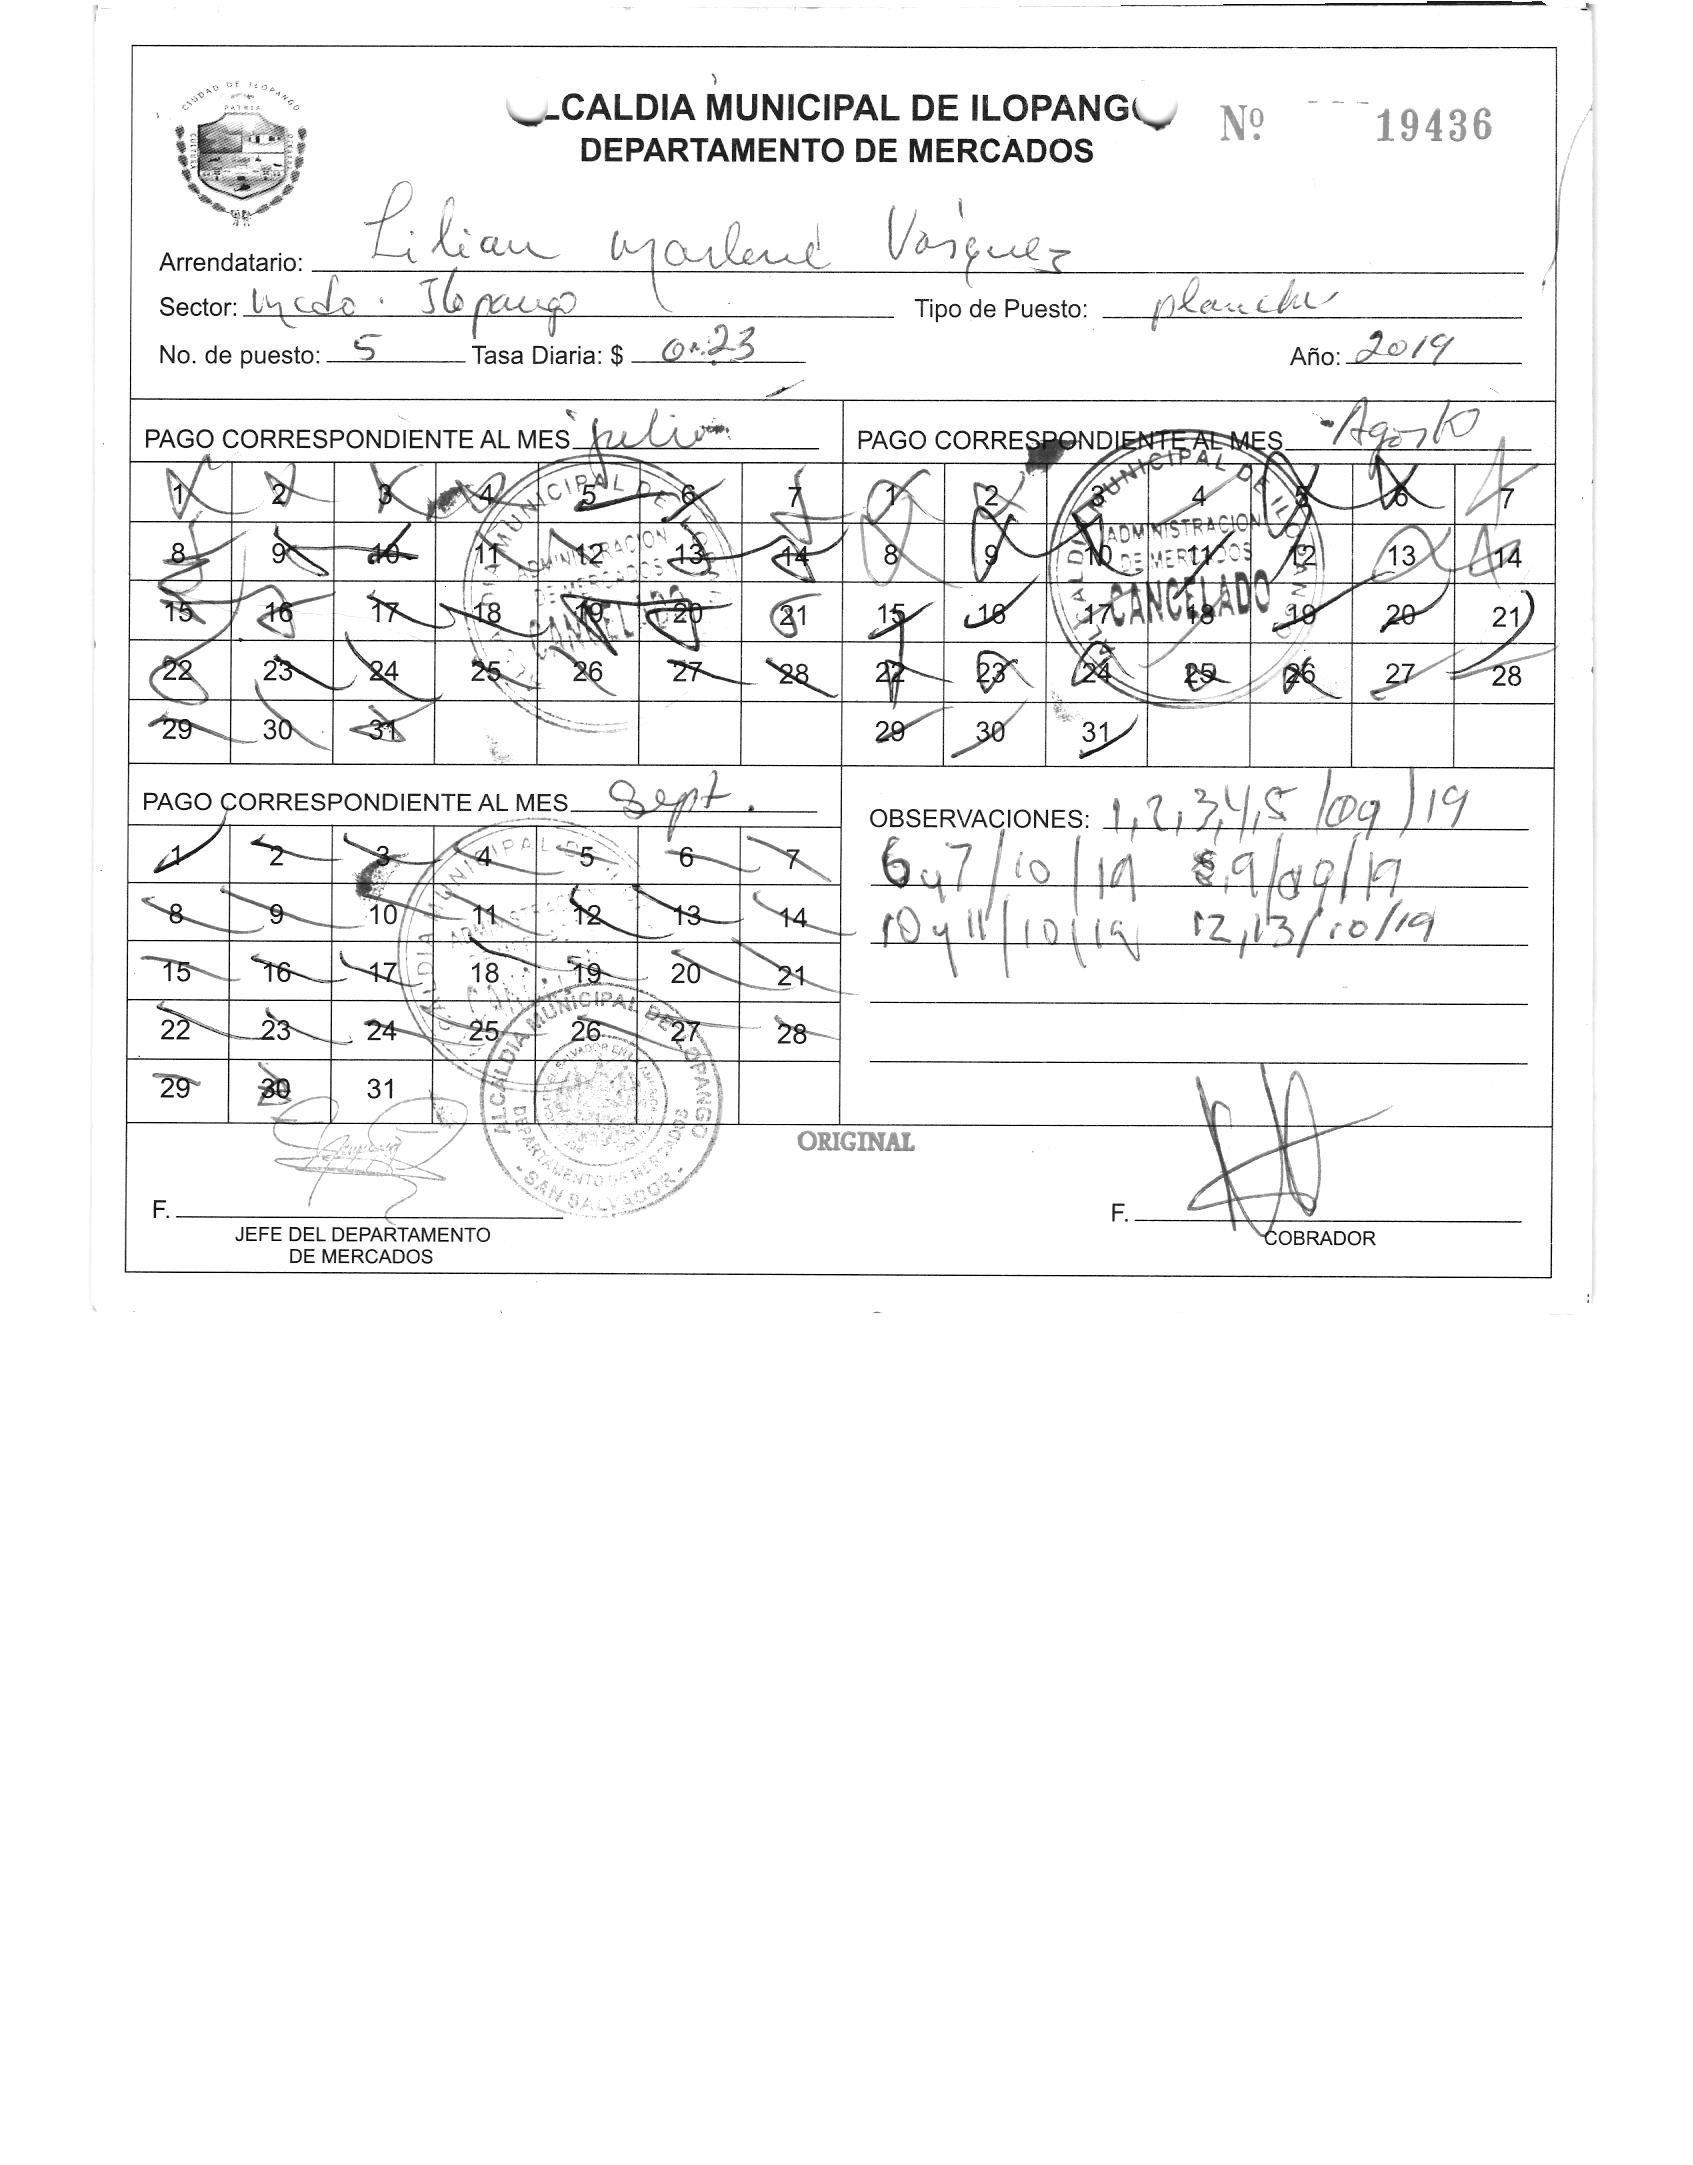 CIUDAD DE ILOPANGO
PATRIA
ALCALDIA MUNICIPAL DE ILOPANGO
DEPARTAMENTO DE MERCADOS
Nº 19436
Arrendatario: Lilian Marlené Vásquez
Sector: Mcdo. Ilopango Tipo de Puesto: plancha
No. de puesto: 5 Tasa Diaria: $ 0.23 Año: 2019
PAGO CORRESPONDIENTE AL MES julio
1 2 3 4 5 6 7
8 9 10 11 12 13 14
15 16 17 18 19 20 21
22 23 24 25 26 27 28
29 30 31
PAGO CORRESPONDIENTE AL MES Agosto
1 2 3 4 5 6 7
8 9 10 11 12 13 14
15 16 17 18 19 20 21
22 23 24 25 26 27 28
29 30 31
ALCALDIA MUNICIPAL DE ILOPANGO
ADMINISTRACION
DE MERCADOS
CANCELADO
PAGO CORRESPONDIENTE AL MES Sept.
1 2 3 4 5 6 7
8 9 10 11 12 13 14
15 16 17 18 19 20 21
22 23 24 25 26 27 28
29 30 31
OBSERVACIONES: 1,2,3,4,5/09/19
6 y 7/10/19 8,9/09/19
10 y 11/10/19 12,13/10/19
ALCALDIA MUNICIPAL DE ILOPANGO
DEPARTAMENTO DE MERCADOS
- SAN SALVADOR -
ORIGINAL
F.
JEFE DEL DEPARTAMENTO
DE MERCADOS
F.
COBRADOR